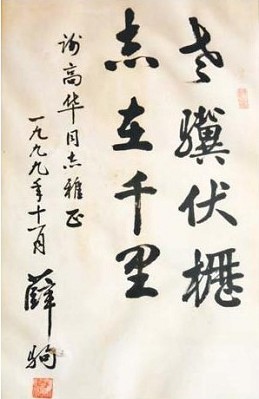 老骥伏枥
志在千里
谢高华同志雅正
一九九九年十一月
薛驹